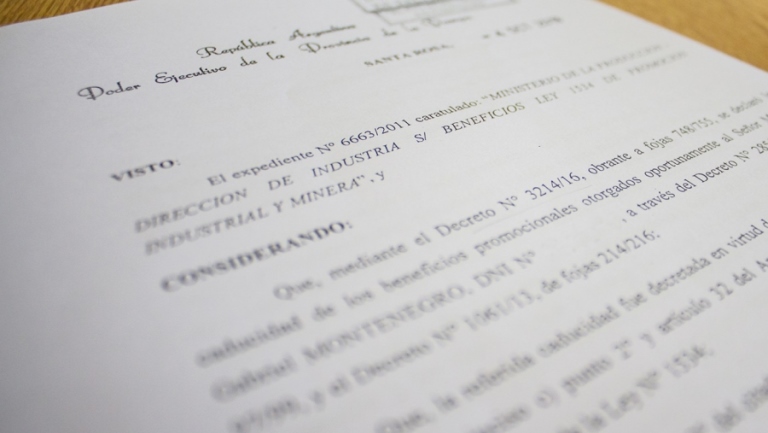 República Argentina
Poder Ejecutivo de la Provincia de La Pampa
SANTA ROSA,
VISTO:
El expediente Nº 6663/2011 caratulado: "MINISTERIO DE LA PRODUCCION -
DIRECCION DE INDUSTRIA S/ BENEFICIOS LEY 1534 DE PROMOCION
INDUSTRIAL Y MINERA", y
CONSIDERANDO:
Que, mediante el Decreto Nº 3214/16, obrante a fojas 748/755, se declaró la
caducidad de los beneficios promocionales otorgados oportunamente al Señor
Gabriel MONTENEGRO, DNI Nº , a través del Decreto Nº
y el Decreto Nº 1061/13, de fojas 214/216;
Que, la referida caducidad fue decretada en virtud
c) punto 2º y artículo 32 del
de la Ley Nº 1534;